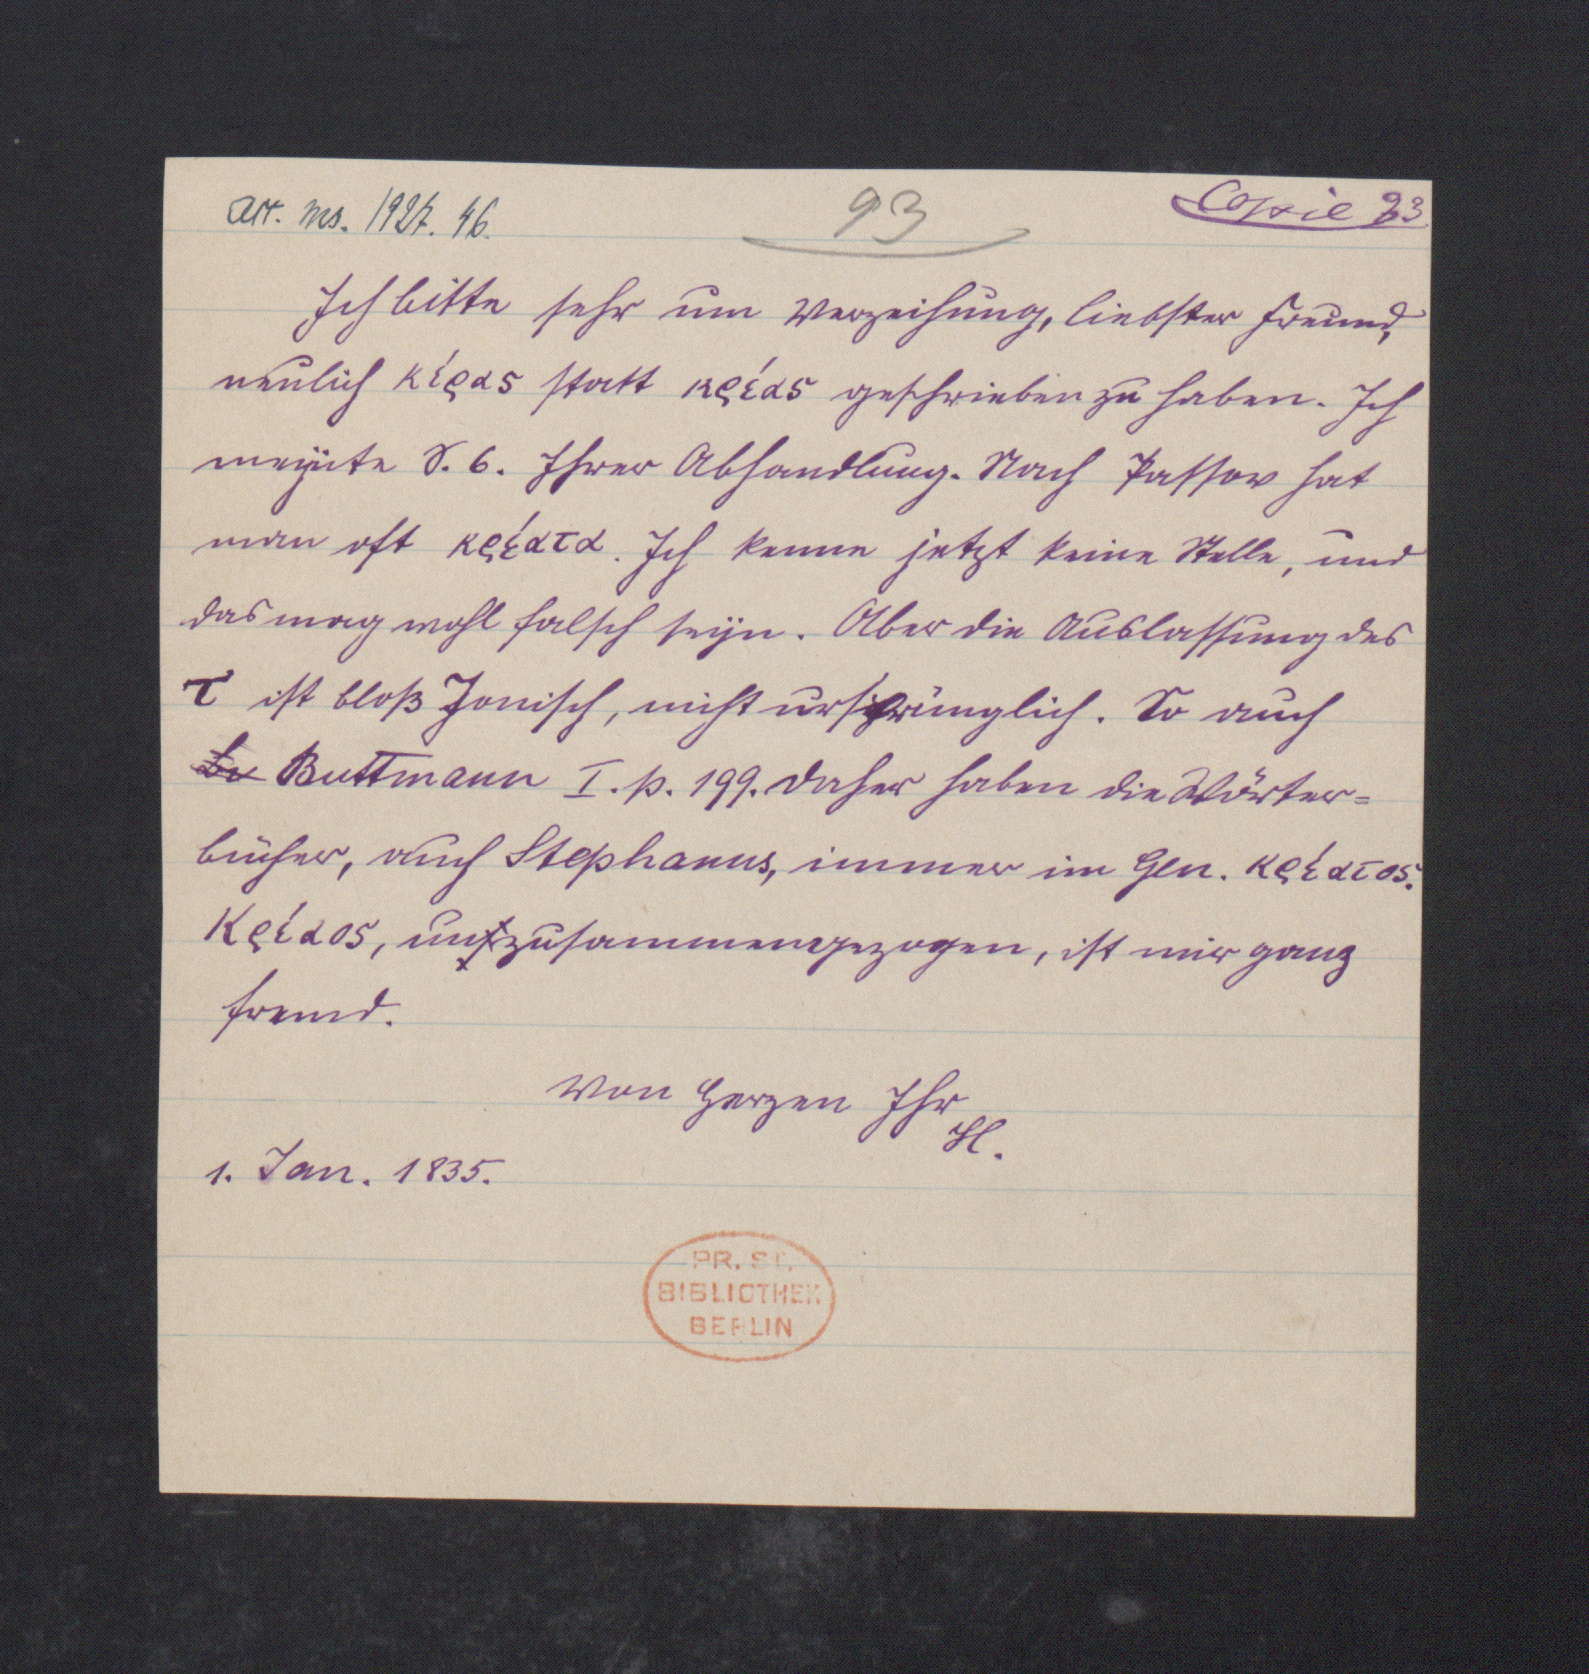 acc. ms. 1927. 46.
93
Copie 93
Ich bitte sehr um Verzeihung, liebster Freund,
neulich κέρας statt κρέας geschrieben zu haben. Ich
meynte S. 6. Ihrer Abhandlung. Nach Passow hat
man oft κρέατα. Ich kenne jetzt keine Stelle, und
das mag wohl falsch seyn. Aber die Auslassung des
τ ist bloß Jonisch, nicht ursprünglich. So auch
Buttmann I. p. 199. Daher haben die Wörter=
bücher, auch Stephanus, immer im Gen. κρέατος.
Κρέαος, unzusammengezogen, ist mir ganz
fremd.
Von Herzen Ihr
H.
1. Jan. 1835.
PR. ST.
BIBLIOTHEK
BERLIN